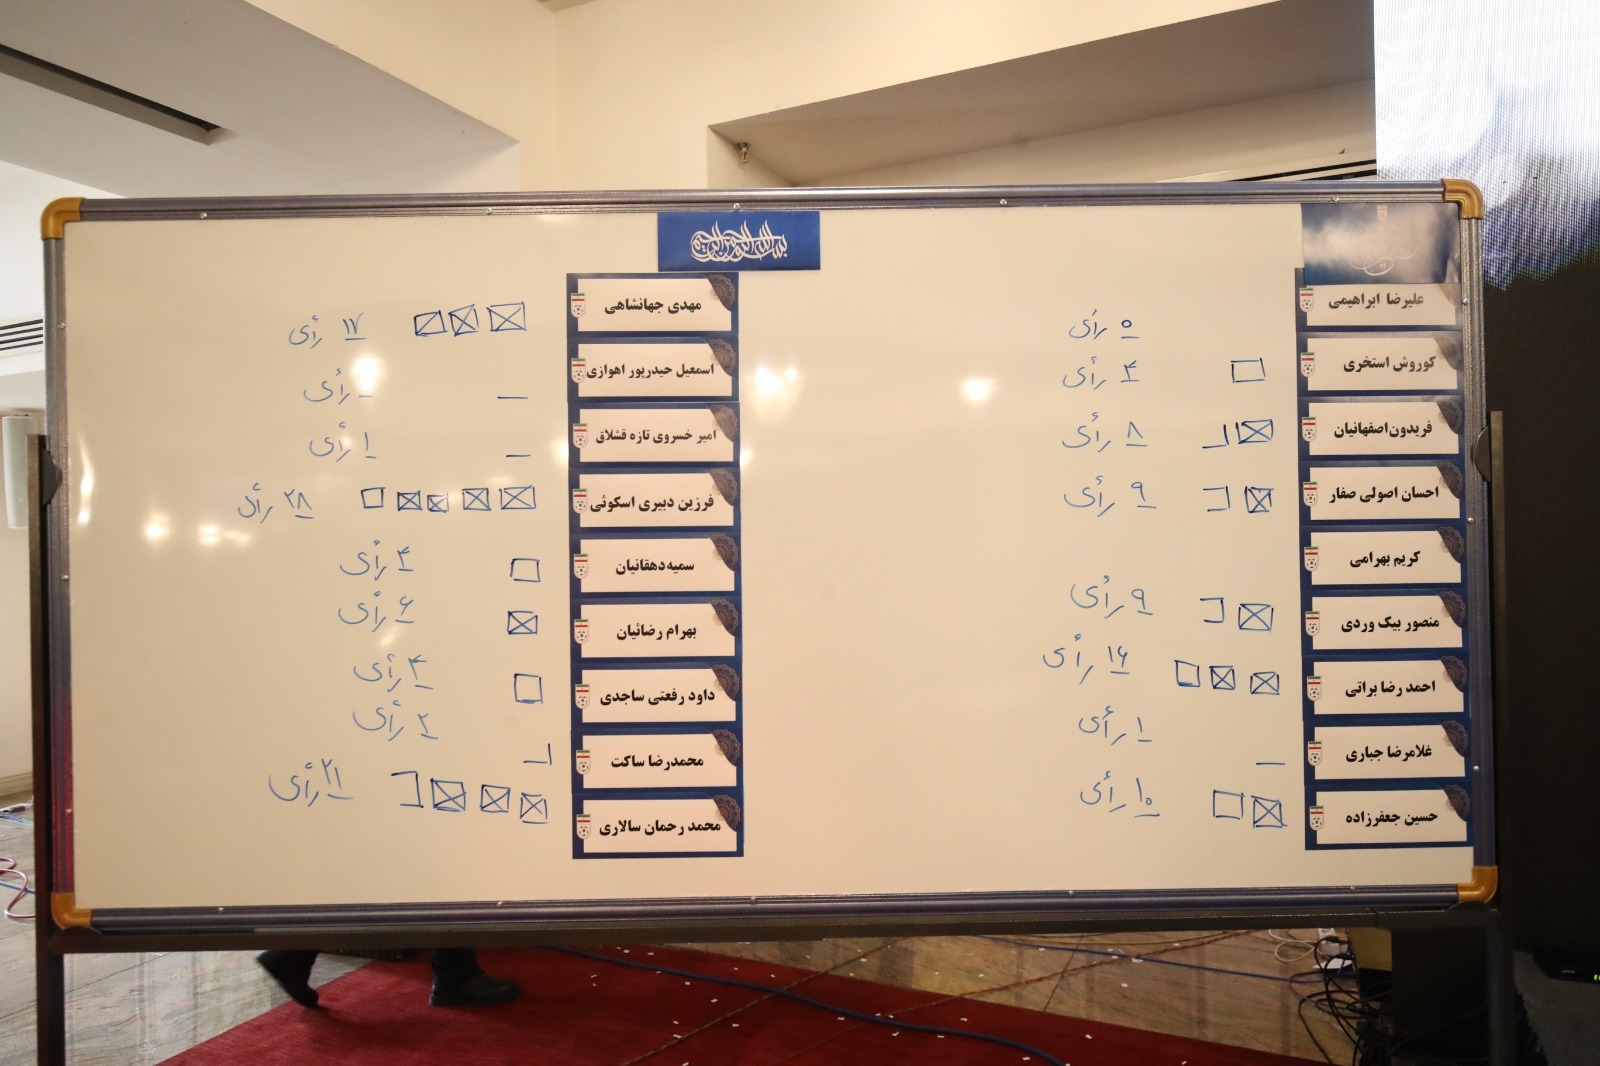 بسم الله الرحمن الرحیم
علیرضا ابراهیمی
۰ رأی
کوروش استخری
۴ رأی
فریدون اصفهانیان
۸ رأی
احسان اصولی صفار
۹ رأی
کریم بهرامی
منصور بیک وردی
۹ رأی
احمد رضا براتی
۱۴ رأی
غلامرضا جباری
۱ رأی
حسین جعفرزاده
۱۰ رأی
مهدی جهانشاهی
۱۷ رأی
اسمعیل حیدرپور اهوازی
رأی
امیر خسروی تازه قشلاق
۱ رأی
فرزین دبیری اسکوئی
۲۸ رأی
سمیه دهقانیان
۴ رأی
بهرام رضائیان
۶ رأی
داود رفعتی ساجدی
۴ رأی
محمدرضا ساکت
۲ رأی
محمد رحمان سالاری
۲۱ رأی